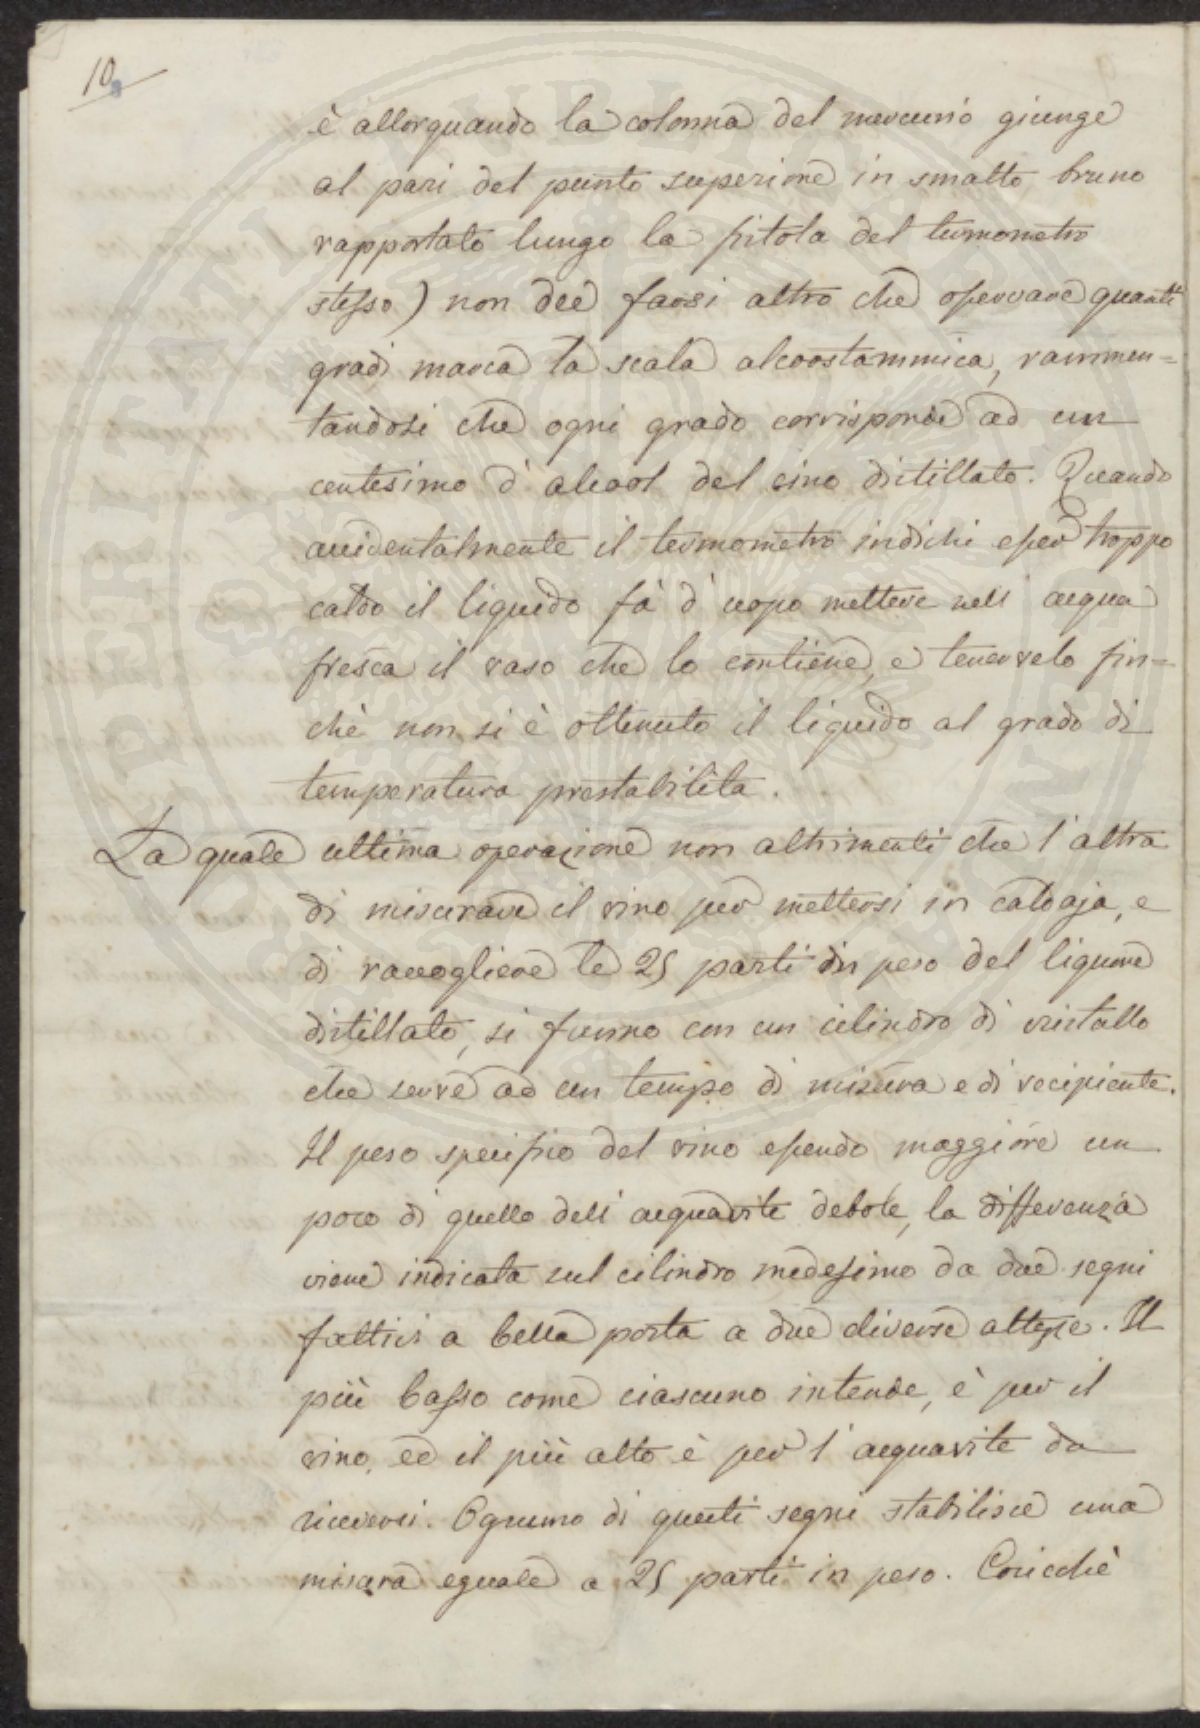 10
è allorquando la colonna del mercurio giunge
al pari del punto superiore in smalto bruno
rapportato lungo la pitola del termometro
stesso) non deè farsi altro che osservare quanti
gradi marca la scala alcoostammica, rammen=
tandosi che ogni grado corrisponde ad un
centesimo d'alcool del vino distillato. Quando
accidentalmente il termometro indichi esser troppo
caldo il liquido fà d'uopo mettere nell'acqua
fresca il vaso che lo contiene, e tenervelo fin=
chè non si è ottenuto il liquido al grado di
temperatura prestabilita.
La quale ultima operazione non altrimenti che l'altra
di misurare il vino per mettersi in caldaja, e
di raccogliere le 25 parti in peso del liquore
distillato, si fanno con un cilindro di cristallo
che serve ad un tempo di misura e di recipiente.
Il peso specifico del vino essendo maggiore un
poco di quello dell'acquavite debole, la differenza
viene indicata sul cilindro medesimo da due segni
fattivi a bella posta a due diverse altezze. Il
più basso come ciascuno intende, è per il
vino, ed il più alto è per l'acquavite da
riceversi. Ognuno di questi segni stabilisce una
misura eguale a 25 parti in peso. Cosicchè
PROSPERITATI PUBLICAE AUGENDAE